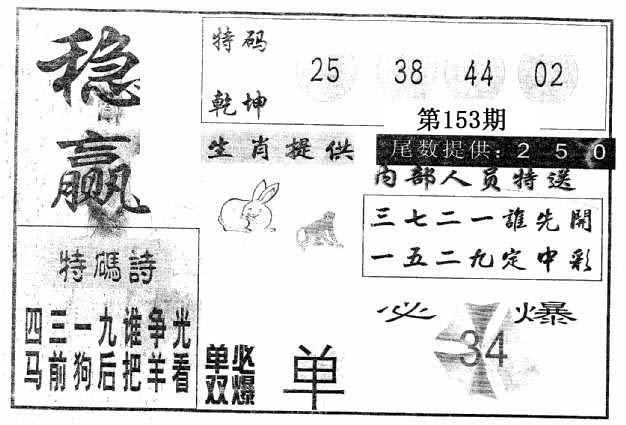 稳赢
特码
乾坤
25 38 44 02
第153期
生肖提供
尾数提供：2 5 0
内部人员特送
三七二一誰先開
一五二九定中彩
特碼詩
四三一九谁争光
马前狗后把羊看
必爆
34
单双
必爆
单